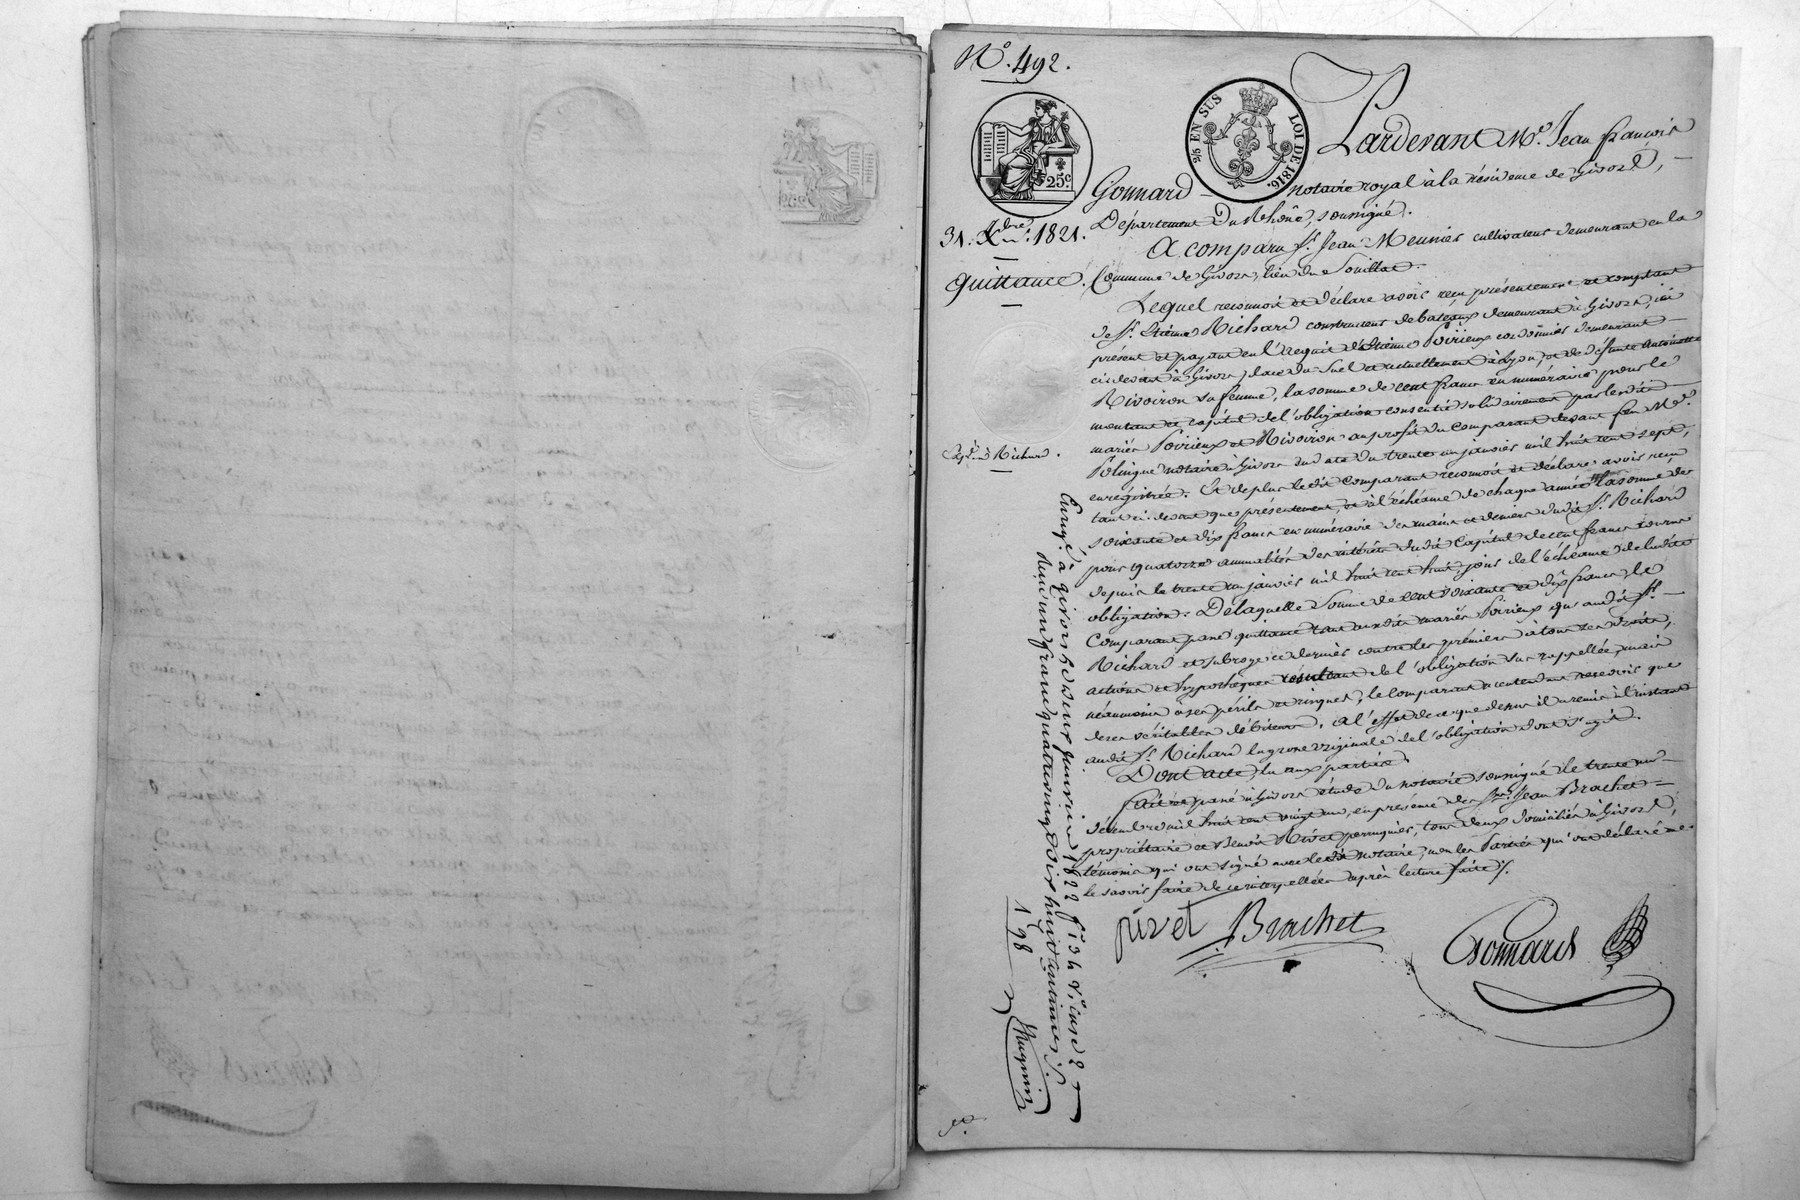 N.º 492.
25c
2/5 EN SUS LOI DE 1816.
Pardevant M.e Jean françois
Gonnard notaire royal à la résidence de Givors,
Département du Rhône, soussigné.
31. Xbre 1821.
quittance.
A comparu S.r Jean Meunier cultivateur demeurant en la
Commune de Givors, lieu de Souillat.
Lequel reconnoit et déclare avoir reçu présentement et comptant
de S.r Etienne Richard constructeur de bateaux demeurant à Givors, ici
présent et payant en l'acquit d'Etienne Poirieux cordonnier demeurant
ci devant à Givors place du Suel et actuellement à Lyon, et de défunte Antoinette
Rivoiron sa femme, la somme de cent francs en numéraire pour le
montant et capital de l'obligation consentie solidairement par lesdits
mariés Poirieux et Rivoiron au profit du comparant devant feu M.e
notaire à Givors en date du trente un janvier mil huit cent sept,
enregistrée. Et de plus ledit comparant reconnoit et déclare avoir reçu
tant ci devant que présentement, et à l'échéance de chaque année la somme de
soixante et dix francs en numéraire des mains et deniers dudit S.r Richard
pour quatorze annualités des intérêts dudit capital de cent francs courus
depuis le trente un janvier mil huit cent huit, jour de l'échéance de ladite
obligation. De laquelle somme de cent soixante et dix francs, le
Comparant passe quittance tant auxdits mariés Poirieux qu'audit S.r
Richard et subroge ce dernier contre les premiers à tous ses droits,
actions et hypothèques résultant de l'obligation sus rappellée, mais
néanmoins à ses périls et risques, le comparant n'entendant recevoir que
de ses véritables débiteurs, à l'effet de ce que dessus il a remis à l'instant
audit S.r Richard la grosse originale de l'obligation dont s'agit.
Dont acte, lu aux parties.
fait et passé à Givors étude du notaire soussigné le trente un
décembre mil huit cent vingt un, en présence des S.rs Jean Brachet
propriétaire et Benoit Rivet perruquier, tous deux domiciliés à Givors,
témoins qui ont signé avec ledit notaire, non les Parties qui ont déclaré ne
le savoir faire de ce interpellées après lecture faite.
Richard.
Enreg. à givors le deux janvier 1822 f.o 34 v.o case 2
reçu un franc quatre vingt dix huit centimes.
1 98
Hugenin
rivet Brachet
Gonnard